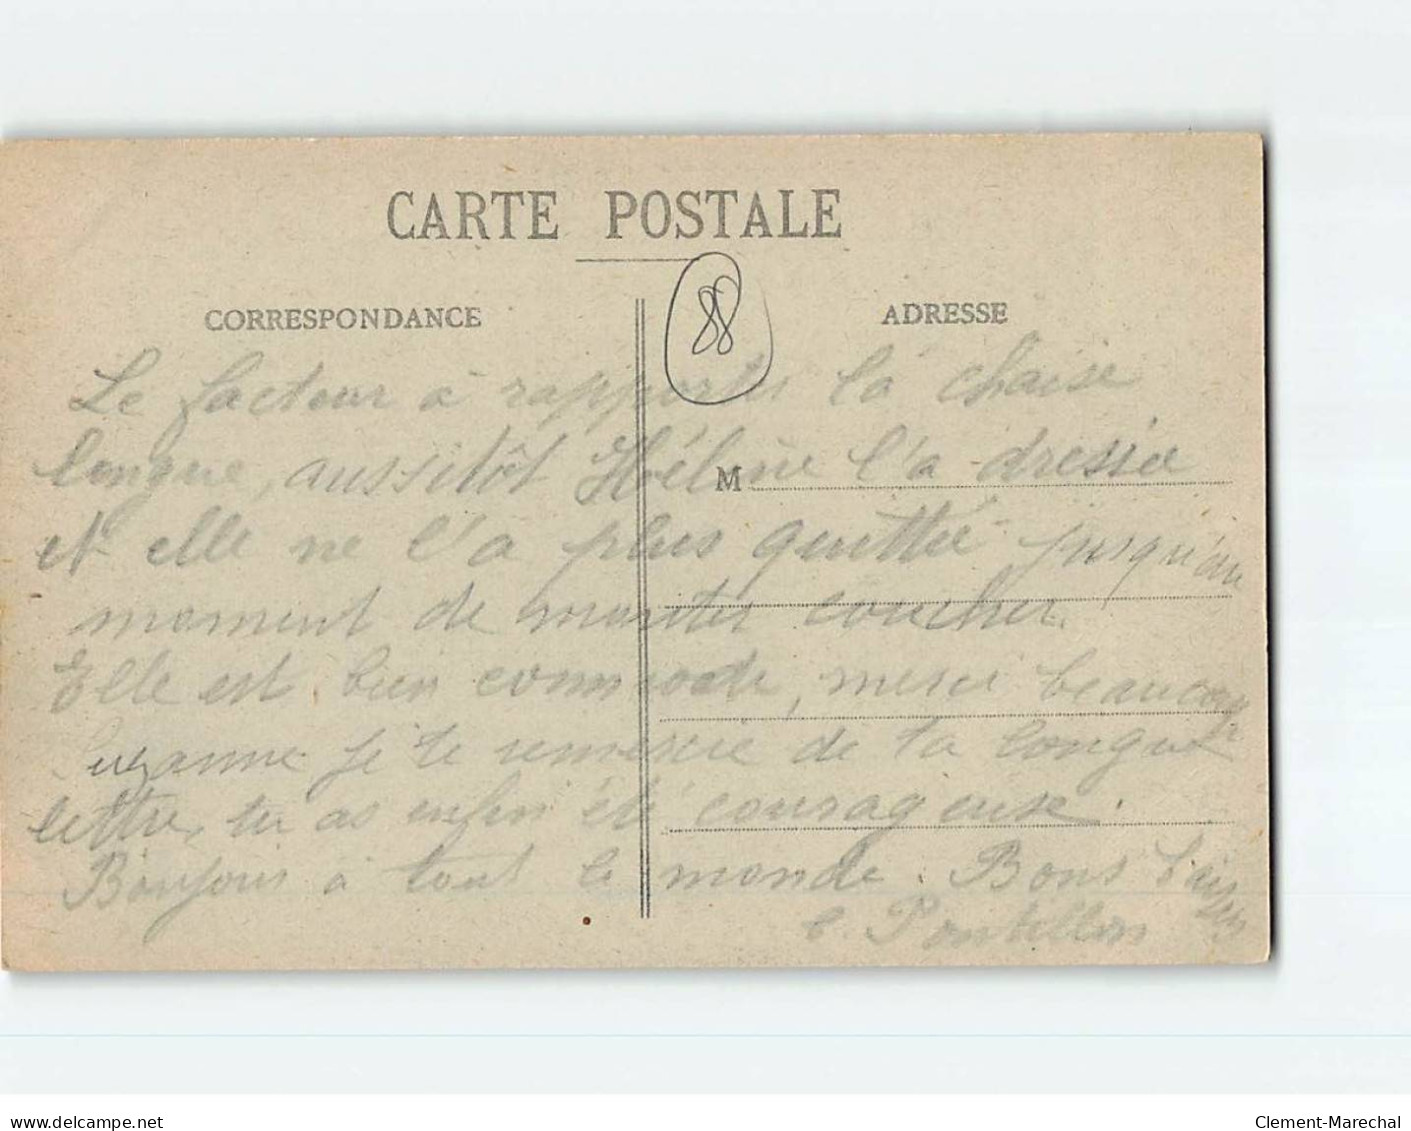 CARTE POSTALE
CORRESPONDANCE
ADRESSE
88
M
Le facteur à rapporté la chaise
longue, aussitôt Hélène l'a dressée
et elle ne l'a plus quittée jusqu'au
moment de monter coucher.
Elle est bien commode, merci beaucoup
Suzanne je te remercie de ta longue
lettre, tu as enfin été courageuse.
Bonjour à tout le monde. Bons baisers
www.delcampe.net
Clement-Marechal